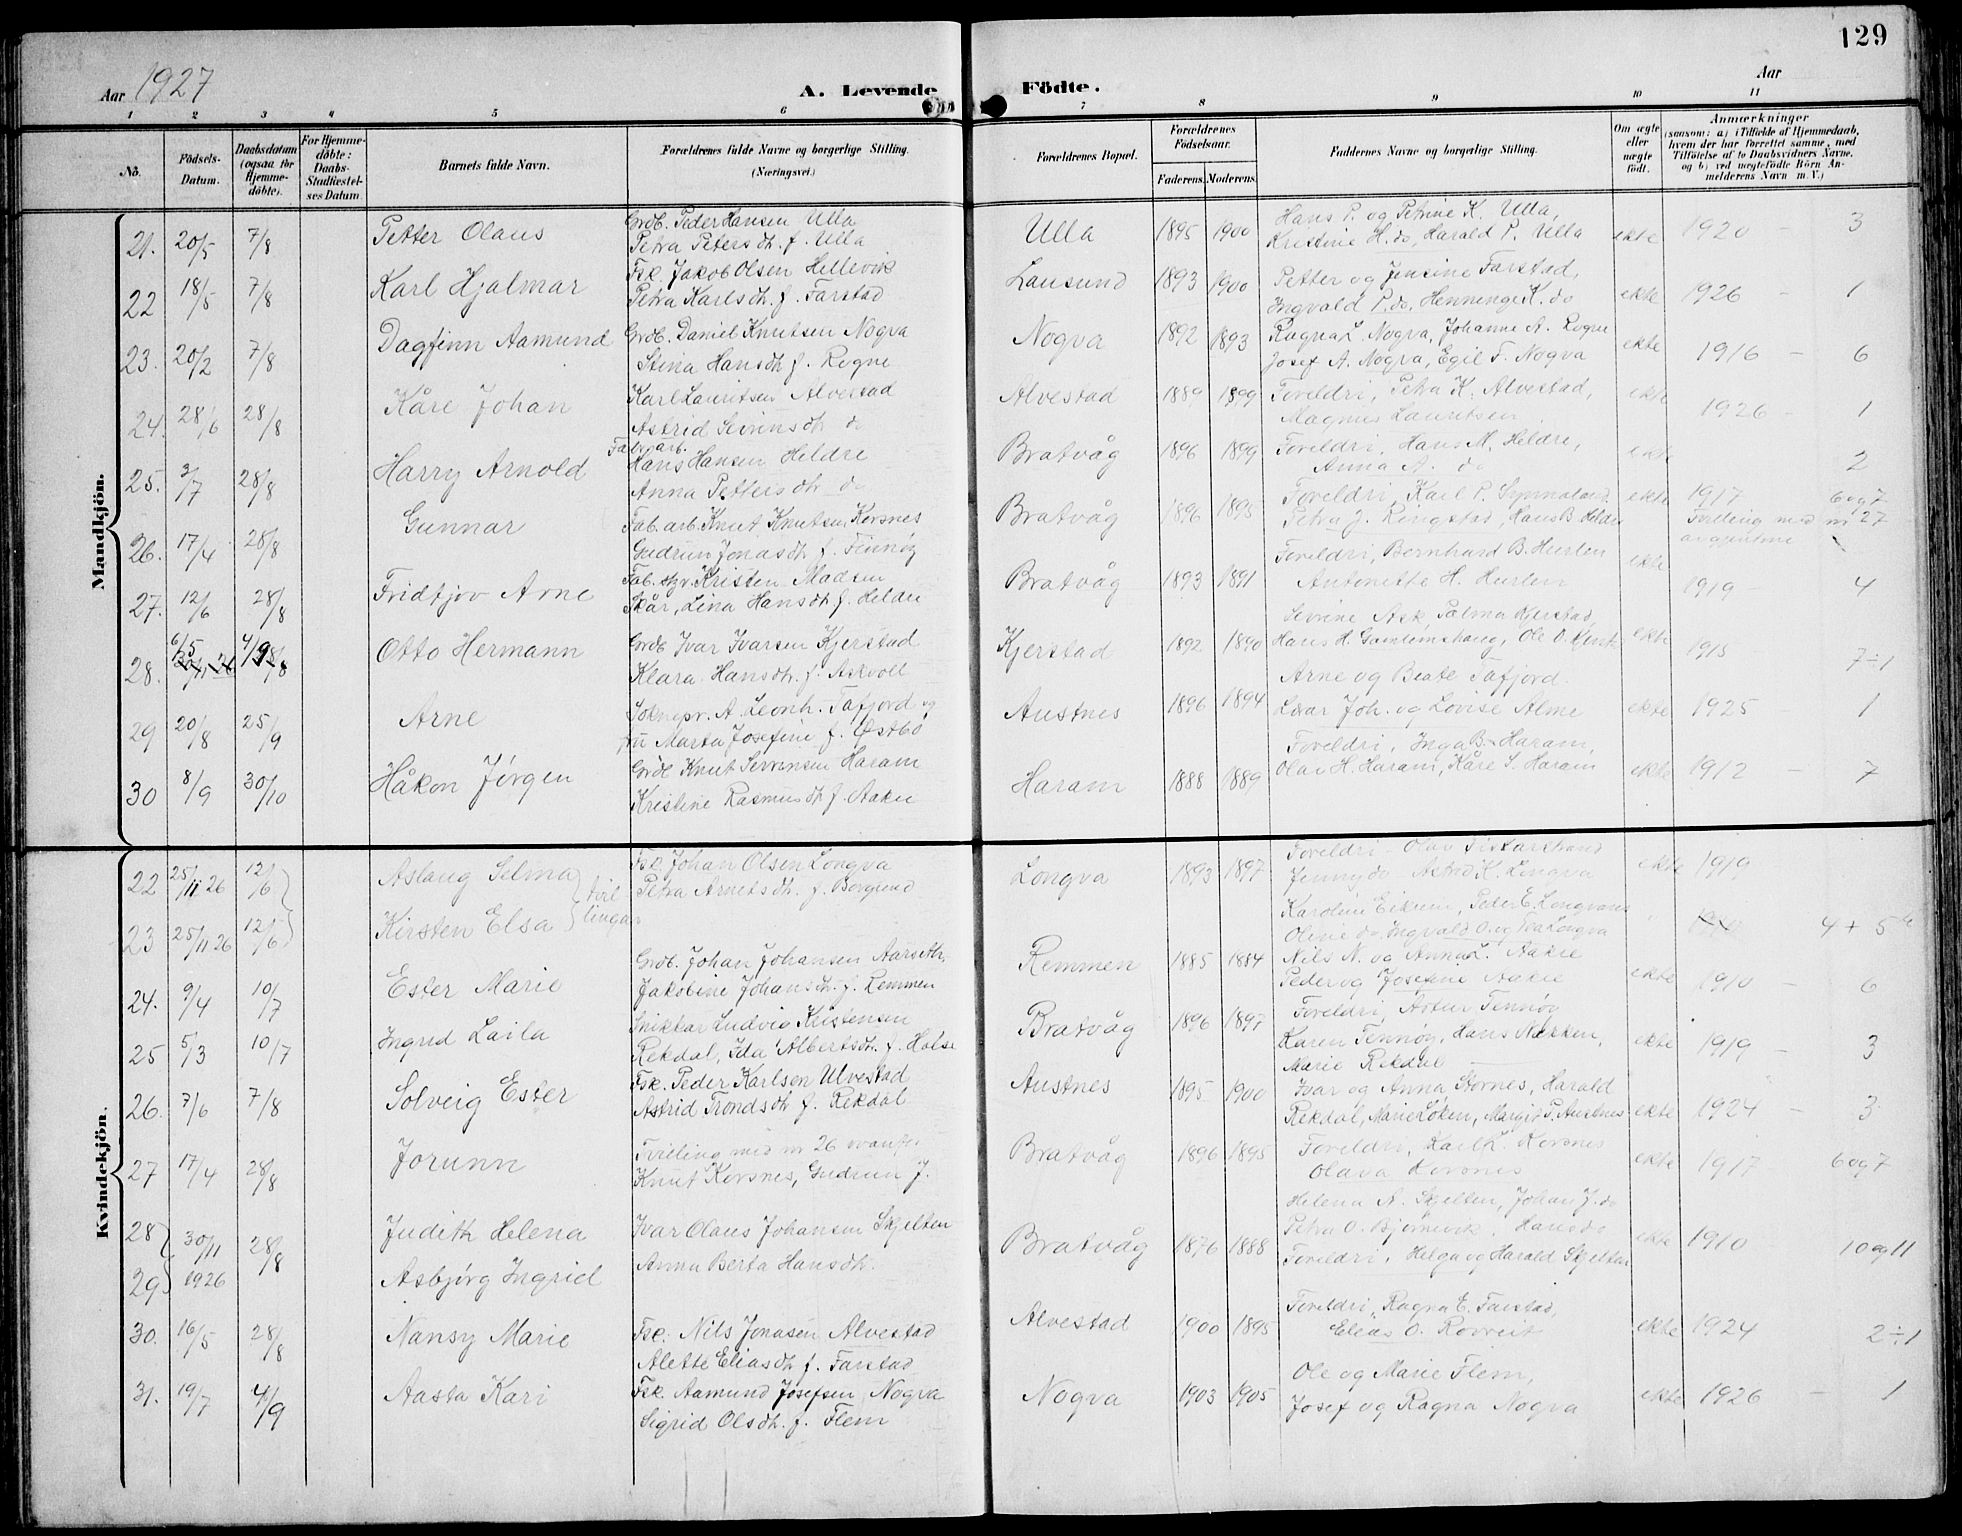 129
Aar 1927
A. Levende Födte.
Aar
1 2 3 4 5 6 7 8 9 10 11
No.
Födsels-Datum.
Daabsdatum (ogsaa för Hjemme-döbte).
For Hjemme-döbte: Daabs-Stadfæstel-ses Datum.
Barnets fulde Navn.
Forældrenes fulde Navne og borgerlige Stilling.
(Næringsvei.)
Forældrenes Bopæl.
Forældrenes Födselsaar.
Faderens. Moderens.
Faddernes Navne og borgerlige Stilling.
Om ægte eller uægte födt.
Anmærkninger
(saasom: a) i Tilfælde af Hjemmedaab, hvem der har forrettet samme, med Tilföielse af to Daabsvidners Navne, og b) ved uegtefödte Börn Anmelderens Navn m. V.)
Mandkjön.
21. 20/5 7/8 Petter Olaus Grdb. Peder Hansen Ulla Ulla 1895 1900 Hans P. og Petrine K. Ulla, ekte 1920 - 3
Petra Petersdh. f. Ulla Kristine H. do, Harald P. Ulla
22 18/5 7/8 Karl Hjalmar Fsk. Jakob Olsen Hellevik Lausund 1893 1900 Petter og Jensine Farstad, ekte 1926 - 1
Petra Karlsdh. f. Farstad Ingvald P. do, Henninge K. do
23. 20/2 7/8 Dagfinn Aamund Grdb. Daniel Knutsen Nogva Nogva 1892 1893 Ragna L. Nogva, Johanne A. Rogne ekte 1916 - 6
Stina Hansdh f. Rogne Josef A. Nogva, Egil F. Nogva
24. 28/6 28/8 Kåre Johan Karl Lauritsen Alvestad Alvestad 1889 1899 Foreldri, Petra K. Alvestad, ekte 1926 - 1
Astrid Sevrinsdh do Magnus Lauritsen
25. 3/7 28/8 Harry Arnold Fabr. arb. Hans Hansen Heldre Bratvåg 1896 1899 Foreldri, Hans M. Heldre, ekte 2
Anna Pettersdh do Anna A. do
26. 17/4 28/8 Gunnar Fab. arb. Knut Knutsen Korsnes Bratvåg 1896 1895 Foreldri, Karl P. ekte 1917 6 og 7
Gudrun Jonasdh f. Finnøy Petra J. Ringstad, Hans B. Heldre Tvilling med nr 27
27. 12/6 28/8 Fridtjov Arne Fab. Kristen Madsen Bratvåg 1893 1891 Foreldri, Bernhard B. Hurlen ekte 1919 - 4
Skår, Lina Hansdh f. Heldre Antonette H. Hurlen
28. 6/5 4/9 Otto Hermann Grdb Ivar Ivarsen Kjerstad Kjerstad 1892 1890 Sevrine Ask, Palma Kjerstad, ekte 1915 7÷1
Klara Hansdh. f. Askvoll Hans H. Gamlemshaug, Ole O.
29 20/8 25/9 Arne Soknepr. A. Leonh. Tafjord og Austnes 1896 1894 Arne og Beate Tafjord. ekte 1925 1
fru Marta Josefine f. Østbø Joh. og Lovise Alme
30 8/9 30/10 Håkon Jørgen Grdb Knut Sevrinsen Haram Haram 1888 1889 Foreldri, Inga B. Haram, ekte 1912 - 7
Kristine Rasmusdh f. Aakre Olav H. Haram, Kåre S. Haram
Kvindekjön.
22 25/11 26 12/6 Aslaug Selma tvil Fsk Johan Olsen Longva Longva 1893 1897 Foreldri - Olav Fiskarstrand ekte 1919
Petra Arnetsdh. f. Borgund Jenny do - Astrid K. Longva
23 25/11 26 12/6 Kirsten Elsa lingar Karoline Eikrem, Peder E. Longva 4 + 5
Oline do, Ingvald O. og Longva
24. 9/4 10/7 Ester Marie Grdb. Johan Johansen Aarseth, Remmen 1885 1884 Nils N. og Anna L. Aakre ekte 1910 - 6
Jakobine Johansdh. f. Remmen Peder og Josefine Aakre
25 5/3 10/7 Ingrid Laila Snikkar Ludvig Kristensen Bratvåg 1896 1897 Foreldri, Astur Tennøy ekte 1919 - 3
Rekdal, Ida Albertsdh. f. Holse Karen Tennøy, Hans Nerken,
Marie Rekdal
26. 7/6 7/8 Solveig Ester Fsk. Peder Karlsen Ulvestad Austnes 1895 1900 Ivar og Anna Stornes, Harald ekte 1924 - 3
Astrid Trondsdh f. Rekdal Rekdal, Marie Løken, Margit P. Austnes
27 17/4 28/8 Jorunn Tvilling med nr 26 ovanfor Bratvåg 1896 1895 Foreldri, Karl L. Korsnes ekte 1917 6 og 7
Knut Korsnes, Gudrun J. Olava Korsnes
28 30/11 28/8 Judith Helena Ivar Olaus Johansen Skjelten Bratvåg 1876 1888 Helena A. Skjelten, Johan J. do ekte 1910 10 og 11
Anna Berta Hansdh. Petra O. Bjørnevik, Hans do
29 1926 Asbjørg Ingrid Foreldri, Helga og Harald Skjelten
30. 16/5 28/8 Nansy Marie Fsk. Nils Jonasen Alvestad Alvestad 1900 1895 Foreldri, Ragna E. Farstad, ekte 1924 2÷1
Alette Eliasdh f. Farstad Elias O. Rovreit
31. 19/7 4/9 Aasta Kari Fsk. Aamund Josefsen Nogva Nogva 1903 1905 Ole og Marie Flem, ekte 1926 - 1
Sigrid Olsdh. f. Flem Josef og Ragna Nogva